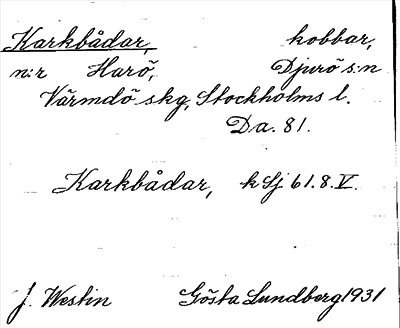 Karkbådar, kobbar,
n:r Harö, Djurö s:n
Värmdö skg, Stockholms l.
Da. 81.
Karkbådar, k Sj 61.8.V.
J. Westin Gösta Lundberg 1931